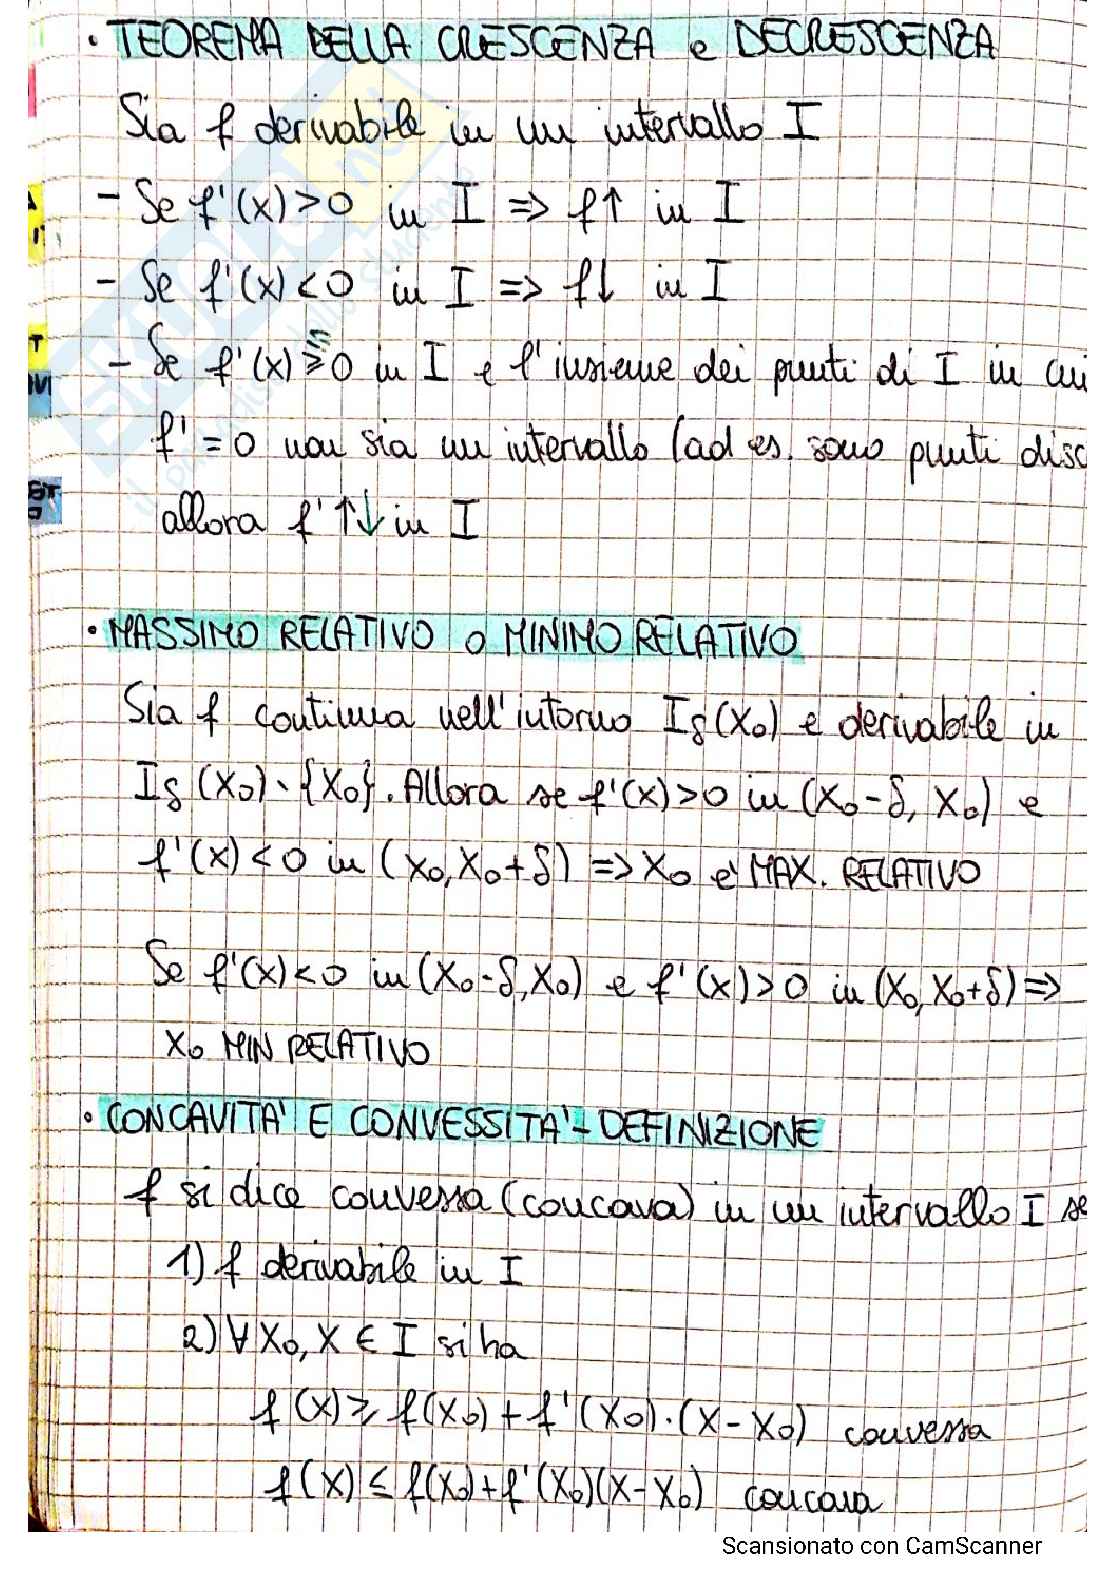 • TEOREMA DELLA CRESCENZA e DECRESCENZA
Sia f derivabile in un intervallo I
- Se f'(x)>0 in I => f↑ in I
- Se f'(x)<0 in I => f↓ in I
- Se f'(x) ⩾≤ 0 in I e l'insieme dei punti di I in cui
f'=0 non sia un intervallo (ad es. sono punti disc
allora f' ↑↓ in I
• MASSIMO RELATIVO o MINIMO RELATIVO
Sia f continua nell'intorno Iδ(x₀) e derivabile in
Iδ(x₀)∖{x₀}. Allora se f'(x)>0 in (x₀-δ, x₀) e
f'(x)<0 in (x₀, x₀+δ) => x₀ e' MAX. RELATIVO
Se f'(x)<0 in (x₀-δ, x₀) e f'(x)>0 in (x₀, x₀+δ) =>
x₀ MIN RELATIVO
• CONCAVITA' E CONVESSITA' - DEFINIZIONE
f si dice convessa (concava) in un intervallo I se
1) f derivabile in I
2) ∀ x₀, x ∈ I si ha
f(x) ⩾ f(x₀) + f'(x₀)·(x-x₀) convessa
f(x) ≤ f(x₀)+f'(x₀)(x-x₀) concava
Scansionato con CamScanner